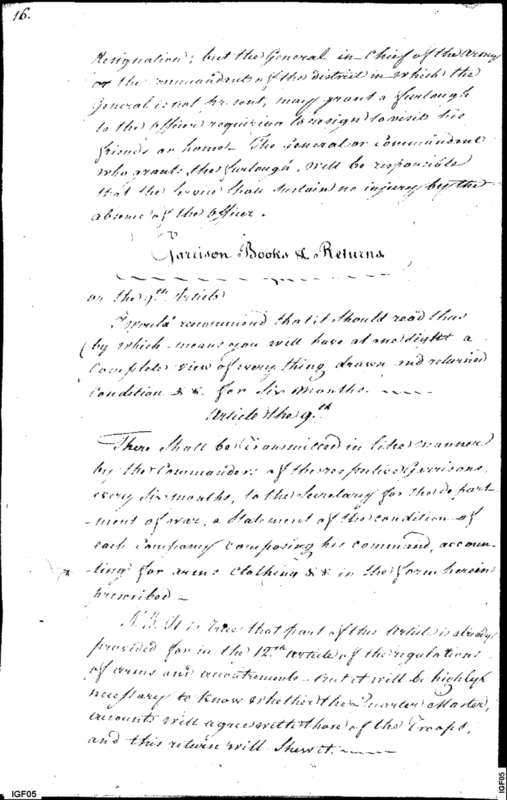 16.
Resignation; but the General in-Chief of the Army
or the commandant of the district in which the
General is not present, may grant a furlough
to the officer requiring to resign to visit his
friends or home— The General or Commandant
who grants the furlough, will be responsible
that the Service shall sustain no injury by the
absence of the officer.
Garrison Books & Returns
on the 9th Article
I would recommend that it should read thus
(by which means you will have at one sight a
Complete view of every thing drawn and returned
Condition &c. for Six Months.
Article the 9th
There Shall be Transmitted in like manner
by the Commanders of the respective Garrisons,
every Six months, to the Secretary for the depart-
-ment of war, a Statement of the condition of
each Company composing his command, accoun-
-ting for arms Clothing &c in the form herein
prescribed—
N.B. It is true that part of this Article is already
provided for in the 12th article of the regulations
of arms and accoutrements—but it will be highly
necessary to know whether the Quarter Master,
accounts will agree with those of the Troops,
and this return will Shew it.
IGF05
IGF05